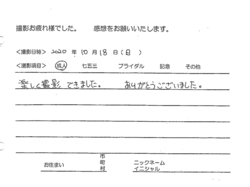 撮影お疲れ様でした。 感想をお願いいたします。
<撮影日時> 2020 年 10 月 18 日 (日)
<撮影項目> 成人 七五三 ブライダル 記念 その他
楽しく撮影できました。 ありがとうございました。
市
お住まい 町 ニックネーム
村 イニシャル